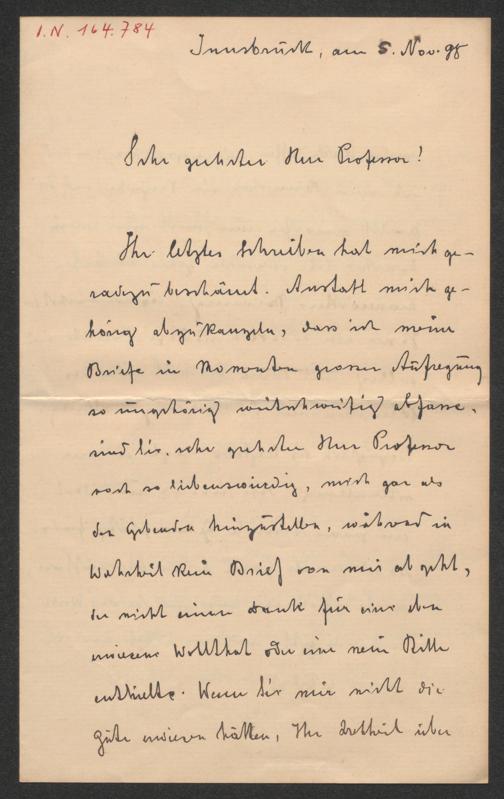 I.N. 164.784
Innsbruck, am 5. Nov. 98
Sehr geehrter Herr Professor!
Ihr letztes Schreiben hat mich ge-
radezu beschämt. Anstatt mich ge-
hörig abzukanzeln, dass ich meine
Briefe in Momenten grosser Aufregung
so ungehörig weitschweifig abfasse,
sind Sie, sehr geehrter Herr Professor
noch so liebenswürdig, mich gar als
den Gebenden hinzustellen, während in
Wahrheit kein Brief von mir abgeht,
der nicht einen Dank für eine eben
erwiesene Wohlthat oder eine neue Bitte
enthielte. Wenn Sie mir nicht die
Güte erwiesen hätten, Ihr Urtheil über